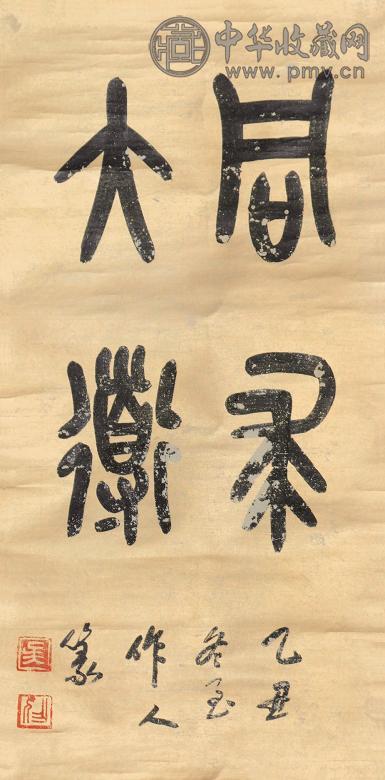 中华收藏网
www.pmv.cn
同求
大道
乙丑
冬至
作人
篆